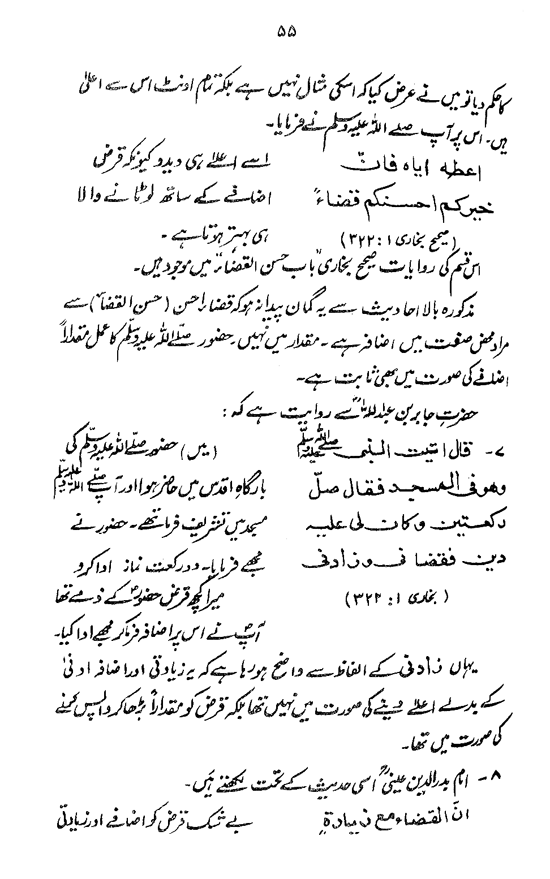 ۵۵
کا حکم دیا تو میں نے عرض کیا کہ اسکی مثال نہیں ہے بلکہ تمام اونٹ اس سے اعلیٰ
ہیں۔ اس پر آپ صلے اللہ علیہ وسلم نے فرمایا۔
اعطه ایاه فانّ
خیرکم احسنکم قضاءً
(صحیح بخاری ۱ : ۳۲۲)
اسے اعلےٰ ہی دیدو کیونکہ قرض
اضافے کے ساتھ لوٹانے والا
ہی بہتر ہوتا ہے۔
اس قسم کی روایات صحیح بخاری "باب حسن القضاء" میں موجود ہیں۔
مذکورہ بالا احادیث سے یہ گمان پیدا نہ ہو کہ قضاء احسن (حسن القضاء) سے
مراد محض صفت میں اضافہ ہے۔ مقدار میں نہیں۔ حضور صلے اللہ علیہ وسلم کا عمل مقداراً
اضافے کی صورت میں بھی ثابت ہے۔
حضرت جابر بن عبداللہؓ سے روایت ہے کہ :
۷- قال اتیت النبی صلی اللہ علیہ وسلم
وهو فی المسجد فقال صلّ
رکعتین وکان لی علیه
دین فقضانی وزادنی
(بخاری ۱ : ۳۲۲)
(میں) حضور صلے اللہ علیہ وسلم کی
بارگاہ اقدس میں حاضر ہوا اور آپ صلی اللہ علیہ وسلم
مسجد میں تشریف فرما تھے۔ حضور نے
مجھے فرمایا۔ دو رکعت نماز ادا کرو
میرا کچھ قرض حضورؐ کے ذمے تھا
آپؐ نے اس پر اضافہ فرما کر مجھے ادا کیا۔
یہاں زادنی کے الفاظ سے واضح ہو رہا ہے کہ یہ زیادتی اور اضافہ ادنیٰ
کے بدلے اعلےٰ دینے کی صورت میں نہیں تھا بلکہ قرض کو مقداراً بڑھا کر واپس کرنے
کی صورت میں تھا۔
۸- امام بدرالدین عینیؒ اسی حدیث کے تحت لکھتے ہیں۔
انّ القضاء مع زیادةٍ
بے شک قرض کو اضافے اور زیادتی